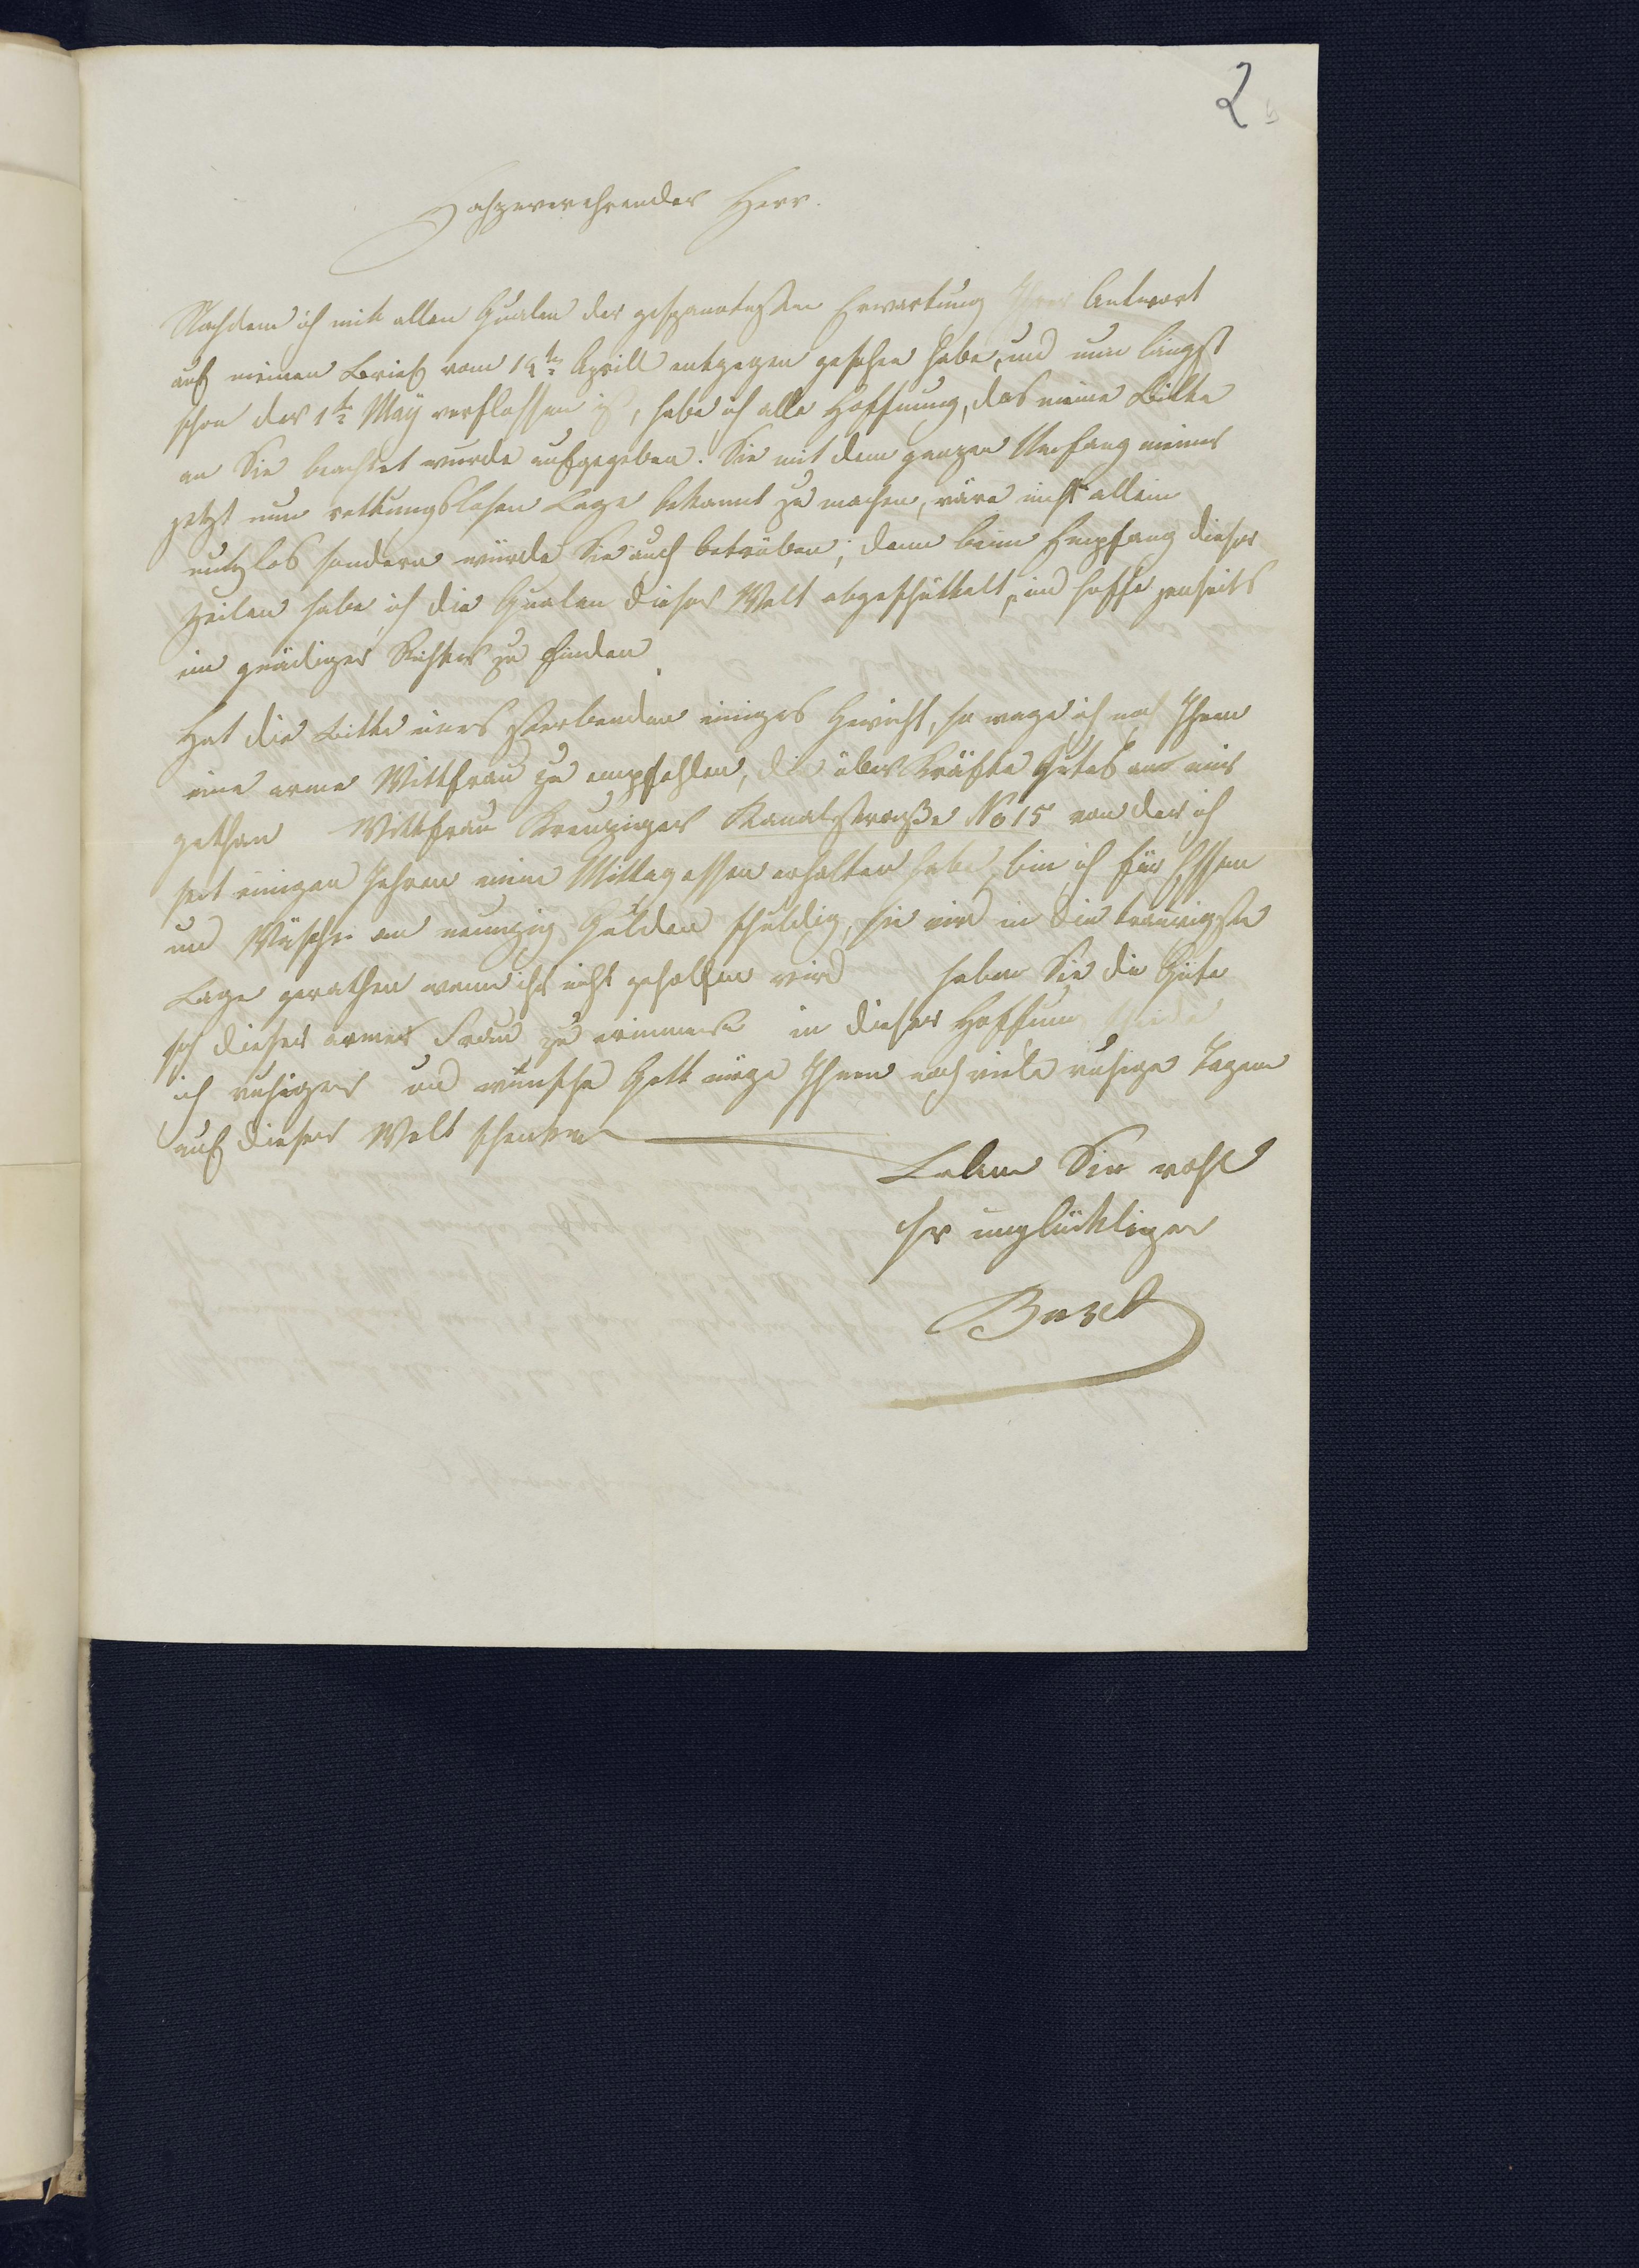 2
Hochzuverehrender Herr.
Nachdem ich mit allen Qualen der gespanntesten Erwartung Ihrer Antwort
auf meinen Brief vom 19tn Aprill entgegen gesehen habe, und nun längst
schon der 1te Maÿ verflossen ist, habe ich alle Hoffnung, das meine Bitte
an Sie beachtet wurde aufgegeben. Sie mit dem ganzen Umfang meiner
jetzt nun rettungslosen Lage bekannt zu machen, wäre nicht allein
nutzlos sondern würde Sie auch betrüben; denn beim Empfang dieser
Zeilen habe ich die Qualen dieser Welt abgeschüttelt, und hoffe jenseits
ein gnädiger Richter zu finden
Hat die Bitte eines sterbenden einiges Gewicht, so wage ich noch Ihnen
eine arme Wittfrau zu empfehlen, die über Kräfte Gutes an mir
gethan Wittfrau Kreuzinger Kanalstraße No 15 von der ich
seit einigen Jahren mein Mittagessen erhalten habe, bin ich für Essen
und Wäsche an neunzig Gulden schuldig, sie wird in die traurigste
Lage gerathen wenn ihr nicht geholfen wird haben Sie die Güte
sich dieser armen Frau zu erinnern in dieser Hoffnung scheide
ich ruhiger und wünsche Gott möge Ihnen noch viele ruhige Tagen
auf dieser Welt schenken
Leben Sie wohl
Ihr unglücklicher